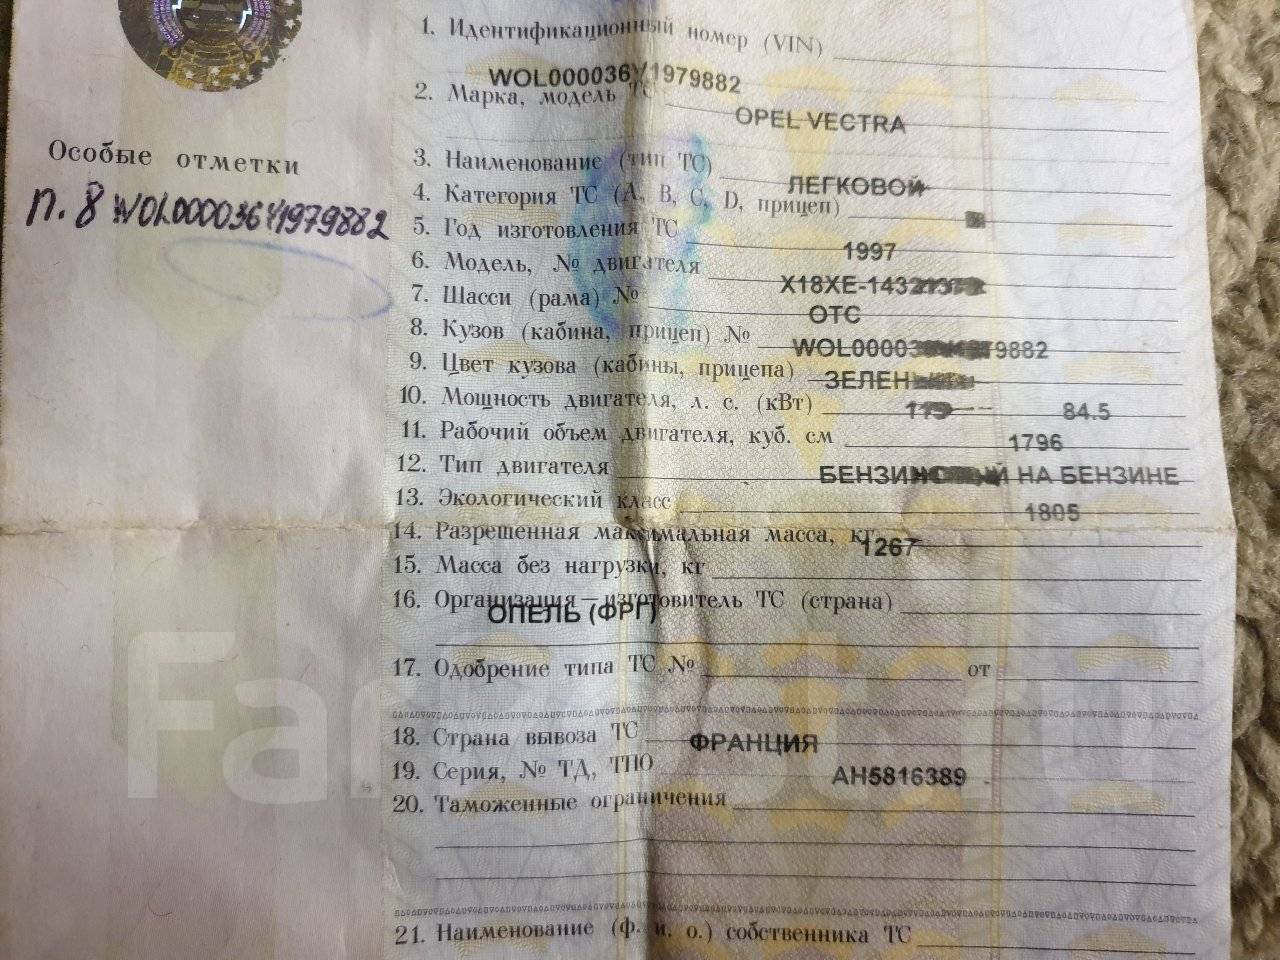 1. Идентификационный номер (VIN)
WOL000036Y1979882
2. Марка, модель ТС
OPEL VECTRA
Особые отметки
п. 8 WOL000036Y1979882
3. Наименование (тип ТС)
ЛЕГКОВОЙ
4. Категория ТС (A, B, C, D, прицеп)
5. Год изготовления ТС
1997
6. Модель, № двигателя
X18XE-1432
7. Шасси (рама) №
ОТС
8. Кузов (кабина, прицеп) №
WOL00003 9882
9. Цвет кузова (кабины, прицепа)
ЗЕЛЕН
10. Мощность двигателя, л. с. (кВт)
84.5
11. Рабочий объем двигателя, куб. см
1796
12. Тип двигателя
БЕНЗИ НА БЕНЗИНЕ
13. Экологический класс
1805
14. Разрешенная максимальная масса, кг
1267
15. Масса без нагрузки, кг
16. Организация–изготовитель ТС (страна)
ОПЕЛЬ (ФРГ)
17. Одобрение типа ТС № от
18. Страна вывоза ТС
ФРАНЦИЯ
19. Серия, № ТД, ТПО
АН5816389
20. Таможенные ограничения
21. Наименование (ф. и. о.) собственника ТС